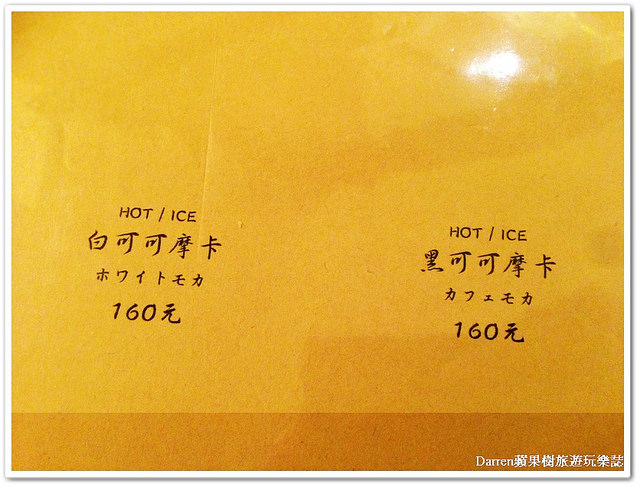 HOT / ICE
白可可摩卡
ホワイトモカ
160元
HOT / ICE
黑可可摩卡
カフェモカ
160元
Darren蘋果樹旅遊玩樂誌